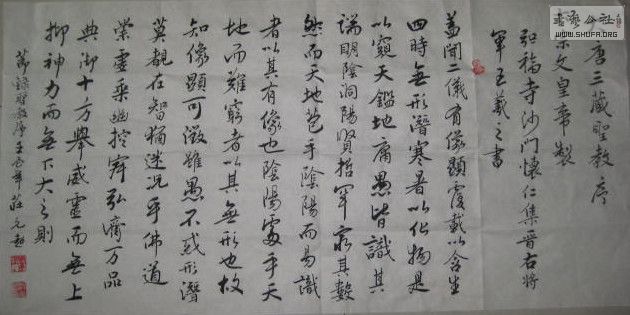 書法公社
WWW.SHUFA.ORG
唐三藏聖教序
宗文皇帝製
弘福寺沙門懷仁集晉右將
軍王羲之書
蓋聞二儀有像顯覆載以含生
四時無形潛寒暑以化物是
以窺天鑑地庸愚皆識其
端明陰洞陽賢哲罕窮其數
然而天地苞乎陰陽而易識
者以其有像也陰陽處乎天
地而難窮者以其無形也故
知像顯可徵雖愚不惑形潛
莫覩在智猶迷況乎佛道
崇虛乘幽控寂弘濟万品
典御十方舉威靈而無上
抑神力而無下大之則
節錄聖教序